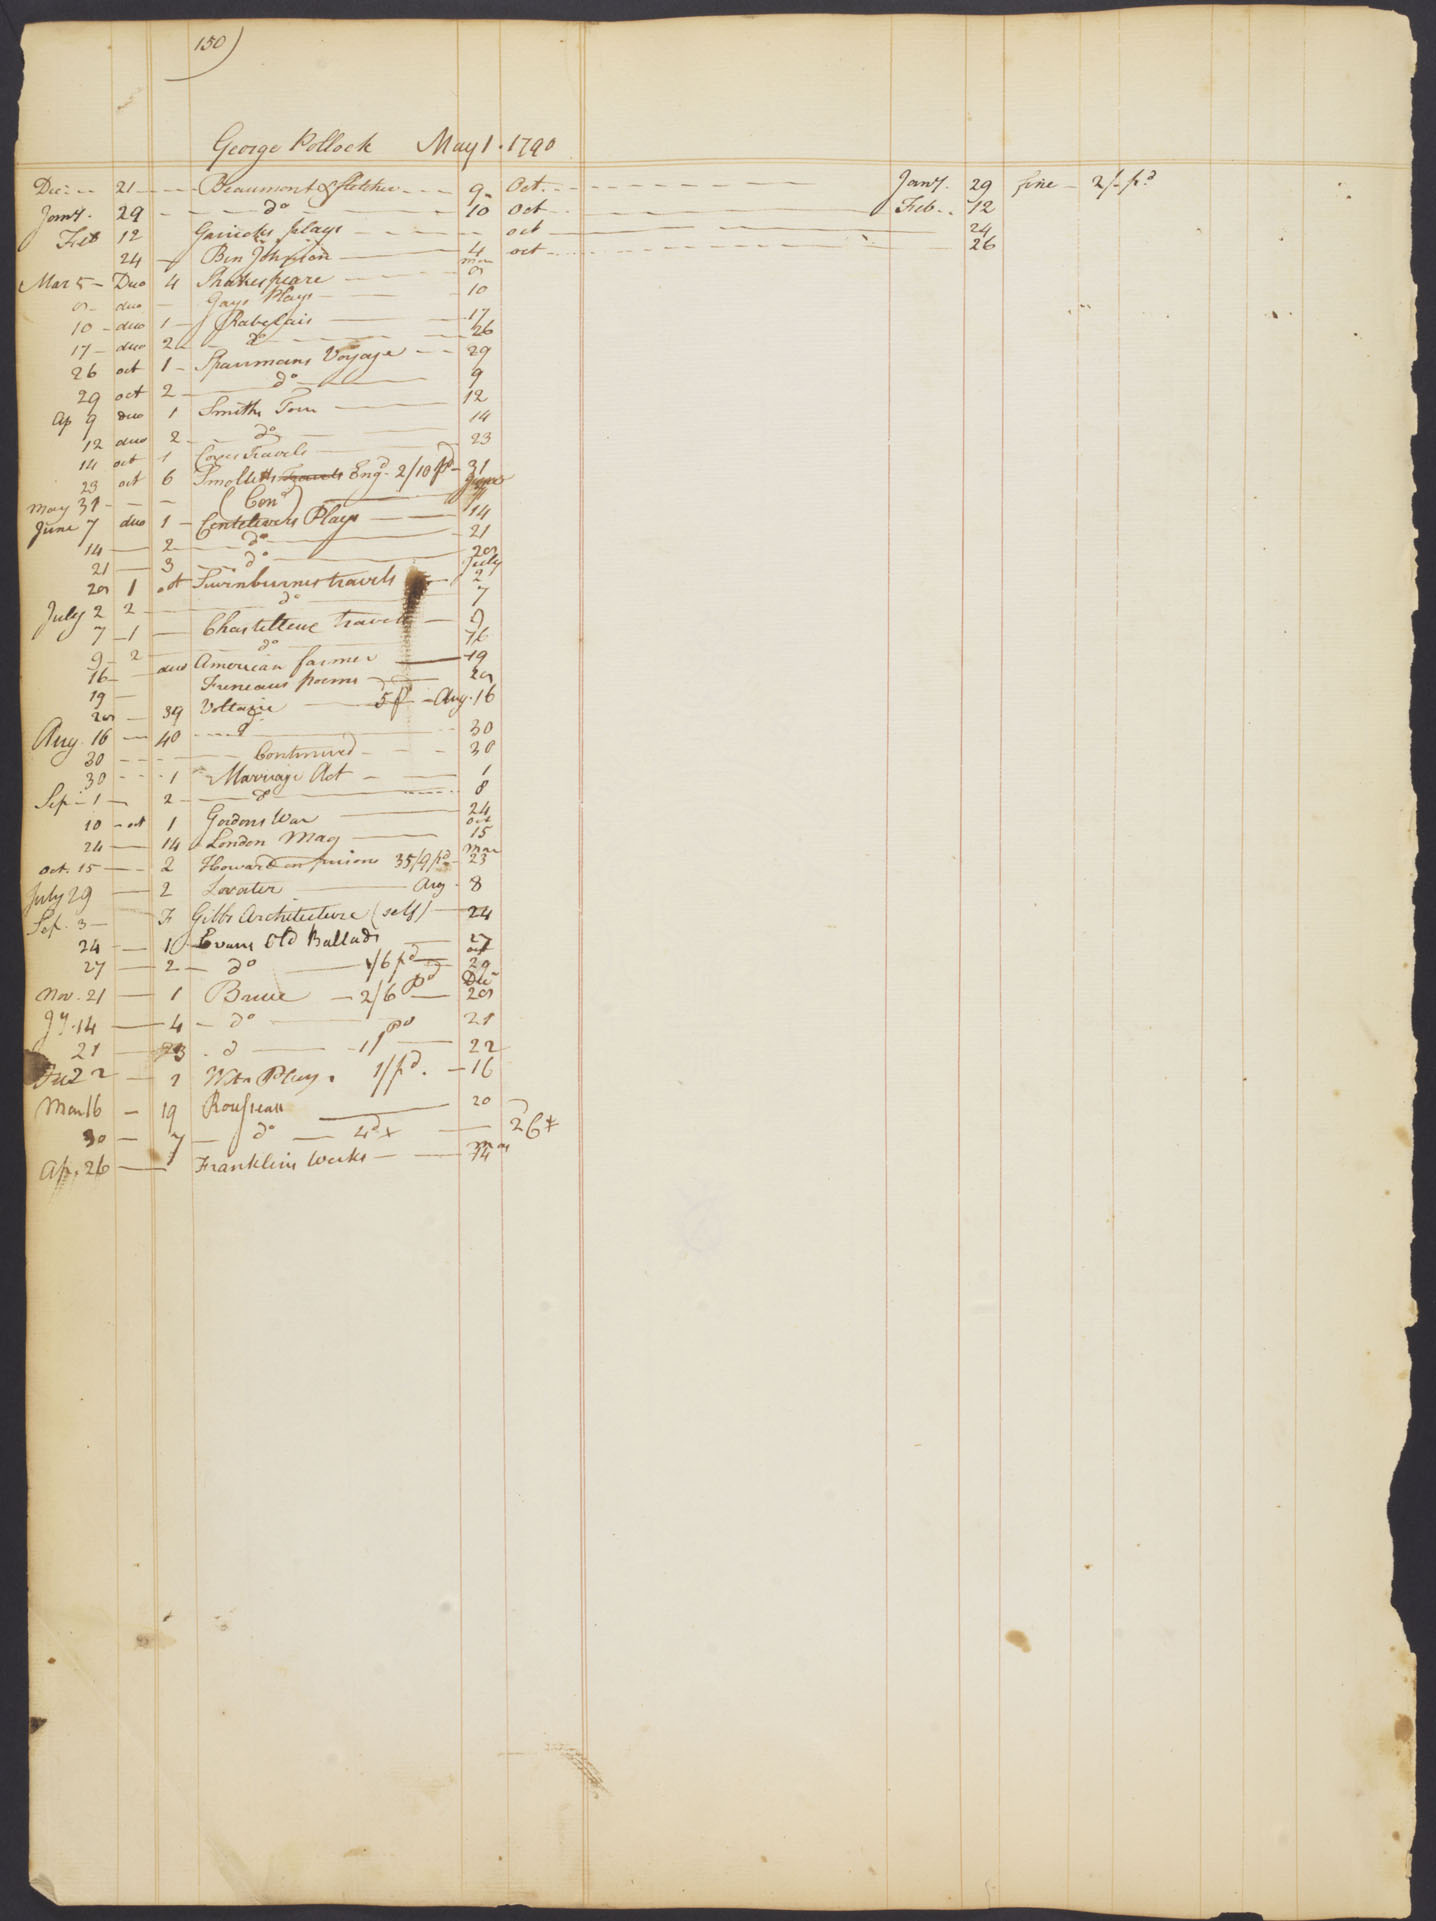 150)
George Pollock May 1. 1790
Dec: 21 Beaumont & fletcher 9 Oct. Jany. 29 fine 2/ pd
Jany. 29 do 10 Oct Feb. 12
Feb 12 Garricks plays oct 24
24 Ben Johnson 4 oct 26
Mar 5 Duo 4 Shakespeare mar 8
8 duo Gays Plays 10
10 duo 1 Rabelais 17
17 duo 2 do 26
26 oct 1 Sparmans Voyage 29
29 oct 2 do 9
Ap 9 duo 1 Smiths Tour 12
12 duo 2 do 14
14 oct 1 Coxes Travels 23
23 oct 6 Smolletts Travels Engd 2/10 pd 31
May 31 (Cond) June 7
June 7 duo 1 Centelivers Plays 14
14 2 do 21
21 3 do 28
28 1 oct Swinburnes travels July 2
July 2 2 do 7
7 1 Chastelleux travels 9
9 2 do 16
16 duo American farmer 19
19 Freneaus poems 28
28 39 Voltaire 5 pd Aug. 16
Aug. 16 40 do 30
30 Continued 30
30 1 Marriage Act 1
Sep 1 2 do 8
10 oct 1 Gordons War 24
24 14 London Mag oct 15
Oct. 15 2 Howard on prisons 35/9 pd Mar 23
July 29 2 Lavater Aug. 8
Sep. 3 F Gibbs Architecture (self) 24
24 1 Evans Old Ballads 27
27 2 do 1/6 pd oct 29
Nov. 21 1 Bruce 2/6 pd Dec 28
Jy. 14 4 do 21
21 3 d 1/ pd 22
22 1 Plays 1/ pd. 16
Mar 16 19 Rousseau 20
30 7 do 4d x 26
Ap. 26 Franklins Works May 14